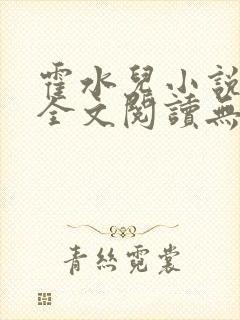 霍水兒小說
全文閱讀無
青絲霓裳